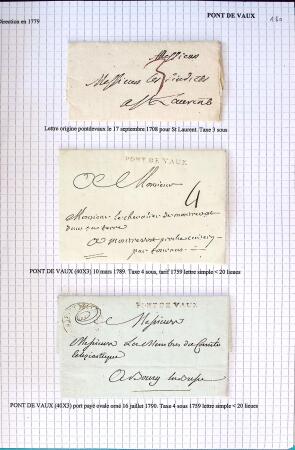 PONT DE VAUX
160
Direction en 1779
Messieurs
Messieurs les sindics
a St Laurens
Lettre origine pontdevaux le 17 septembre 1708 pour St Laurent. Taxe 3 sous
PONT DE VAUX
Monsieur
4
Monsieur le chevalier de
dans sa terre
a
par tournus
PONT DE VAUX (40X3) 10 mars 1789. Taxe 4 sous, tarif 1759 lettre simple < 20 lieues
PONT DE VAUX
Messieurs
Messieurs Les Membres du Comité
Eclesiastique
A Bourg
PONT DE VAUX (40X3) port payé ovale orné 16 juillet 1790. Taxe 4 sous 1759 lettre simple < 20 lieues